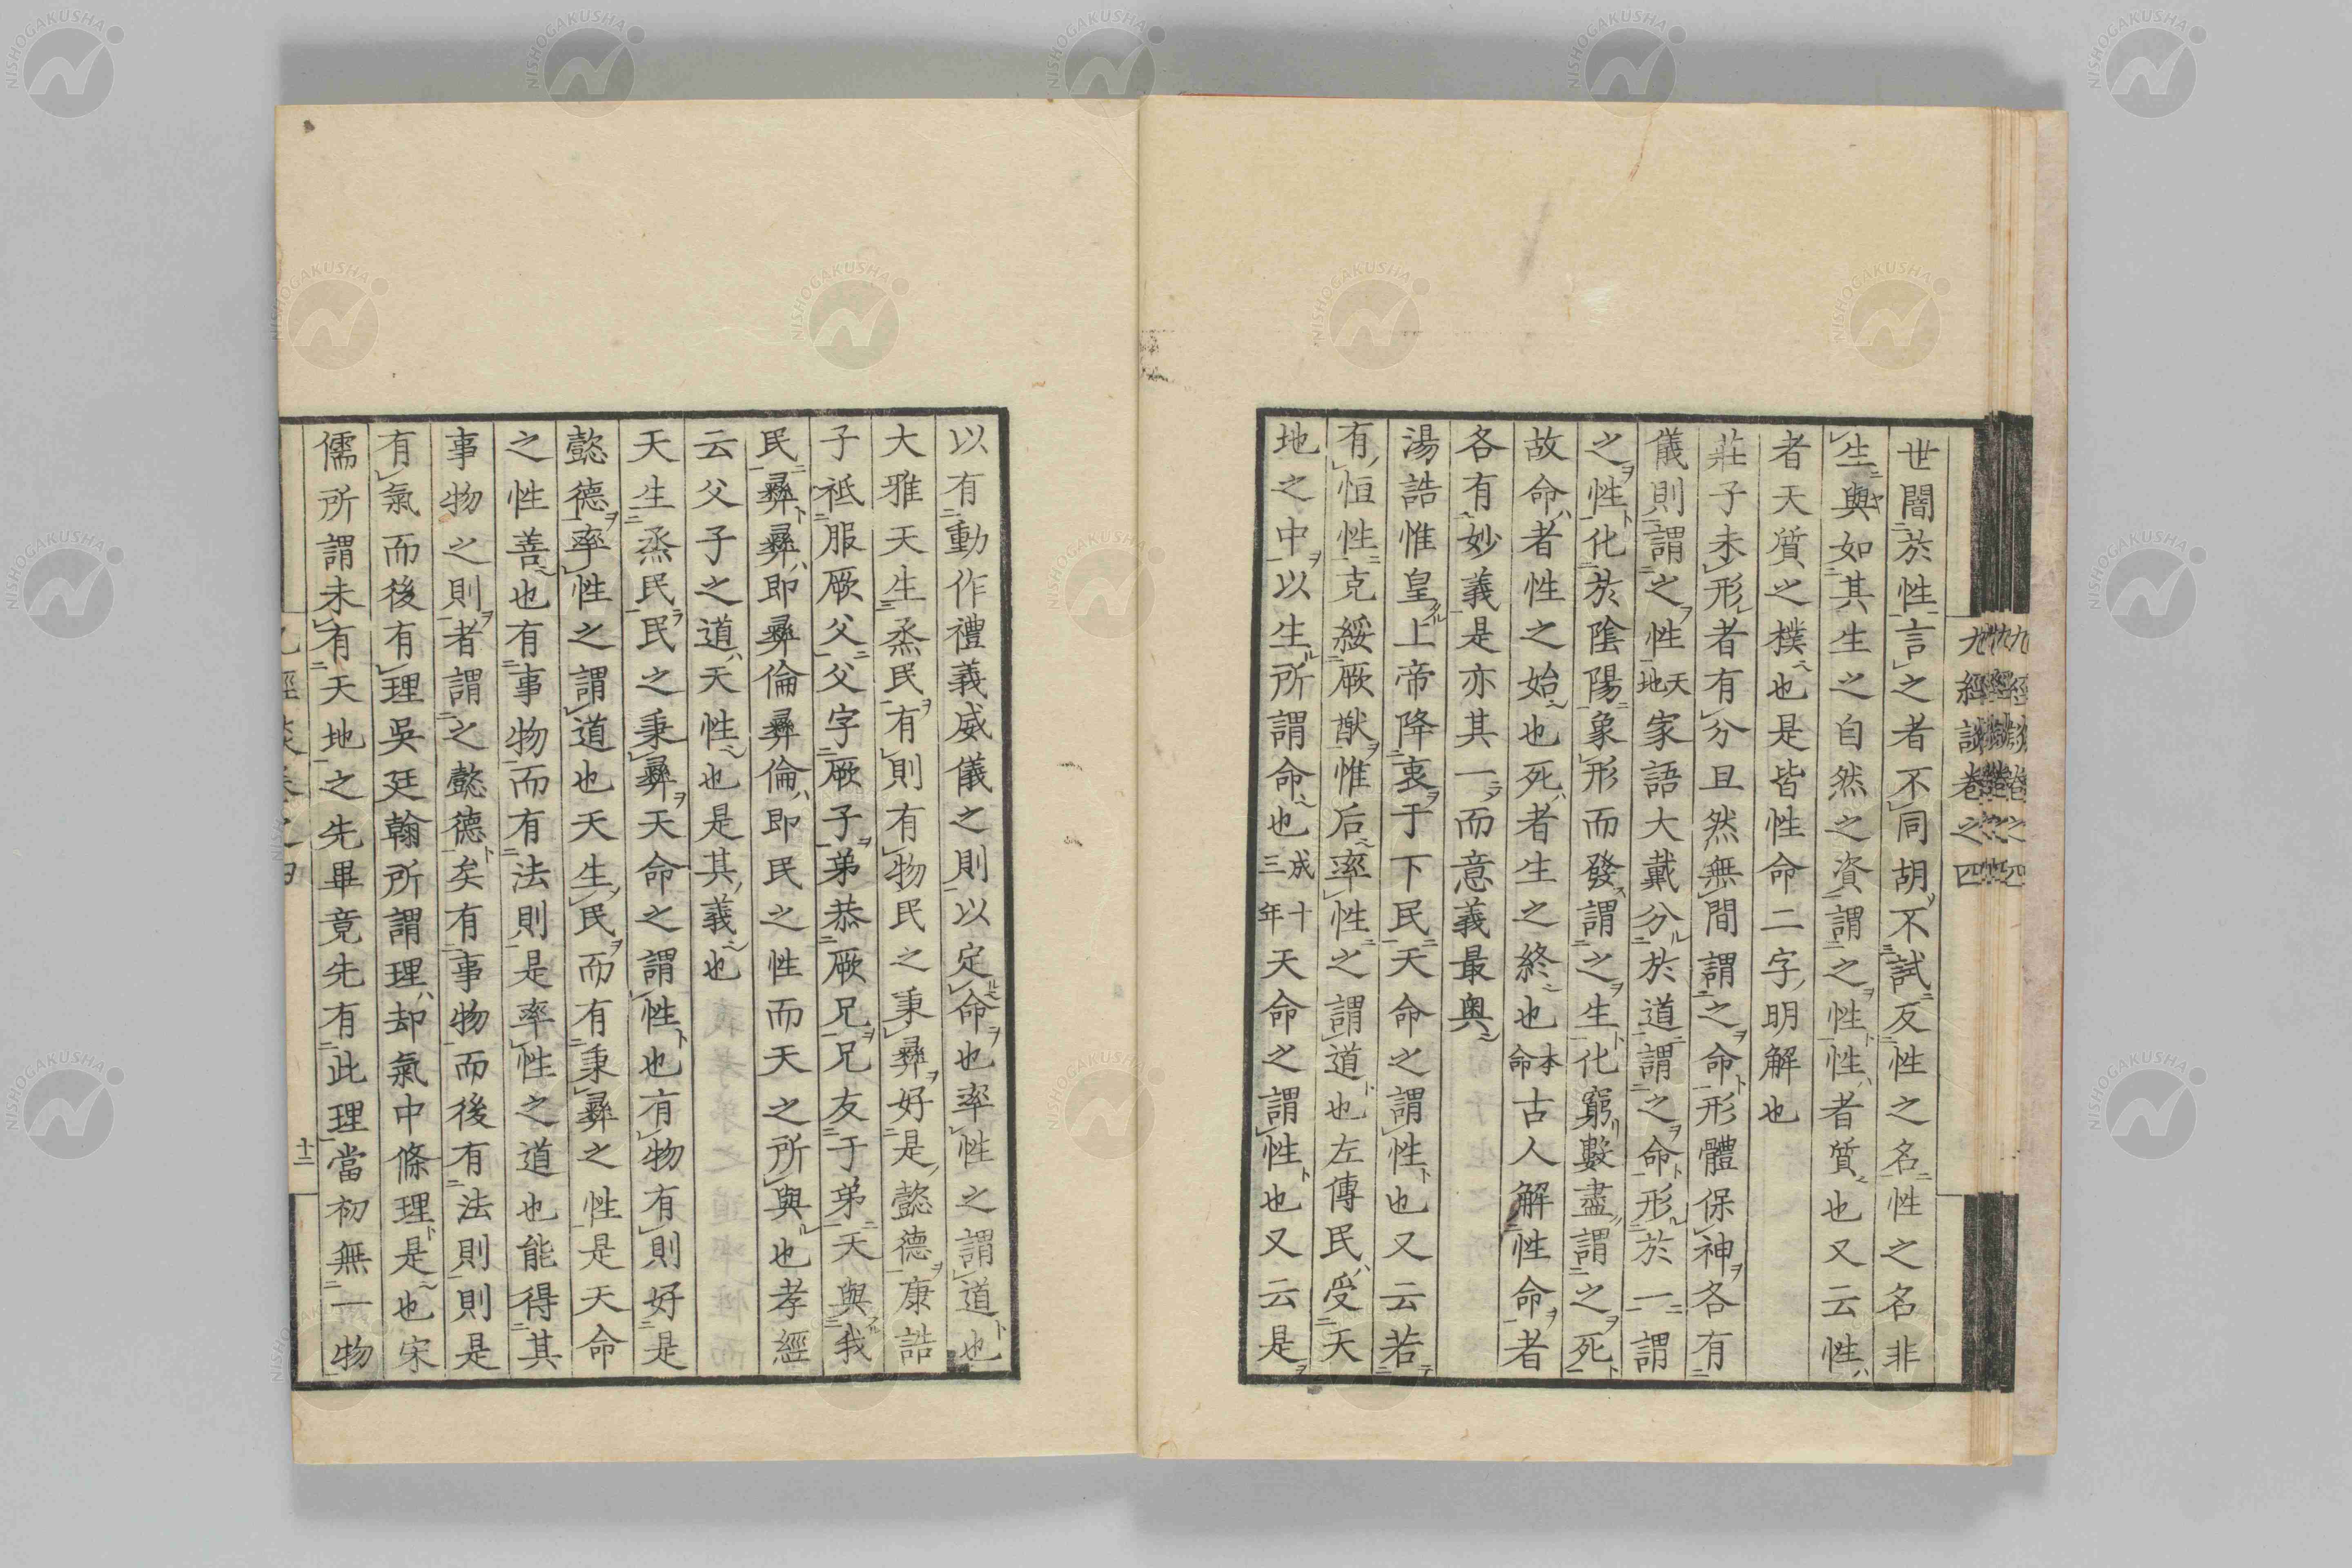 九經談卷之四
世闇於性言之者不同胡不試反性之名性之名非
生與如其生之自然之資謂之性性者質也又云性
者天質之樸也是皆性命二字明解也
莊子未形者有分且然無間謂之命形體保神各有
儀則謂之性天地家語大戴分於道謂之命形於一謂
之性化於陰陽象形而發謂之生化窮數盡謂之死
故命者性之始也死者生之終也本命古人解性命者
各有妙義是亦其一而意義最奧
湯誥惟皇上帝降衷于下民天命之謂性也又云若
有恒性克綏厥猷惟后率性之謂道也左傳民受天
地之中以生所謂命也成十三年天命之謂性也又云是
以有動作禮義威儀之則以定命也率性之謂道也
大雅天生烝民有則有物民之秉彝好是懿德康誥
子祇服厥父父字厥子弟恭厥兄兄友于弟天與我
民彝彝即彝倫彝倫即民之性而天之所與也孝經
云父子之道天性也是其義也
天生烝民民之秉彝天命之謂性也有物有則好是
懿德率性之謂道也天生民而有秉彝之性是天命
之性善也有事物而有法則是率性之道也能得其
事物之則者謂之懿德矣有事物而後有法則則是
有氣而後有理吳廷翰所謂理却氣中條理是也宋
儒所謂未有天地之先畢竟先有此理當初無一物
十二
NISHOGAKUSHA